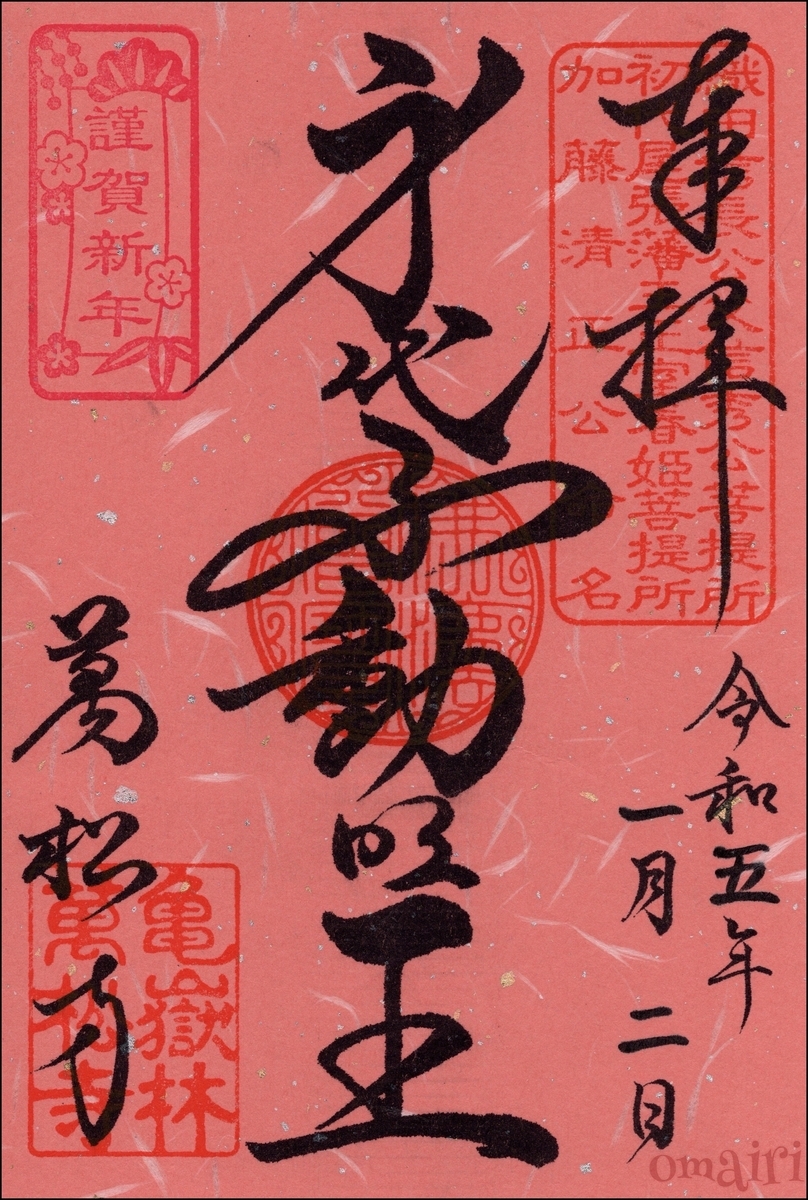 奉拝
織田信長公父信秀公菩提所
初代尾張藩主正室春姫菩提所
加藤清正公命名
令和五年
一月二日
身代不動明王
謹賀新年
萬松寺
亀嶽林
萬松寺
omairi